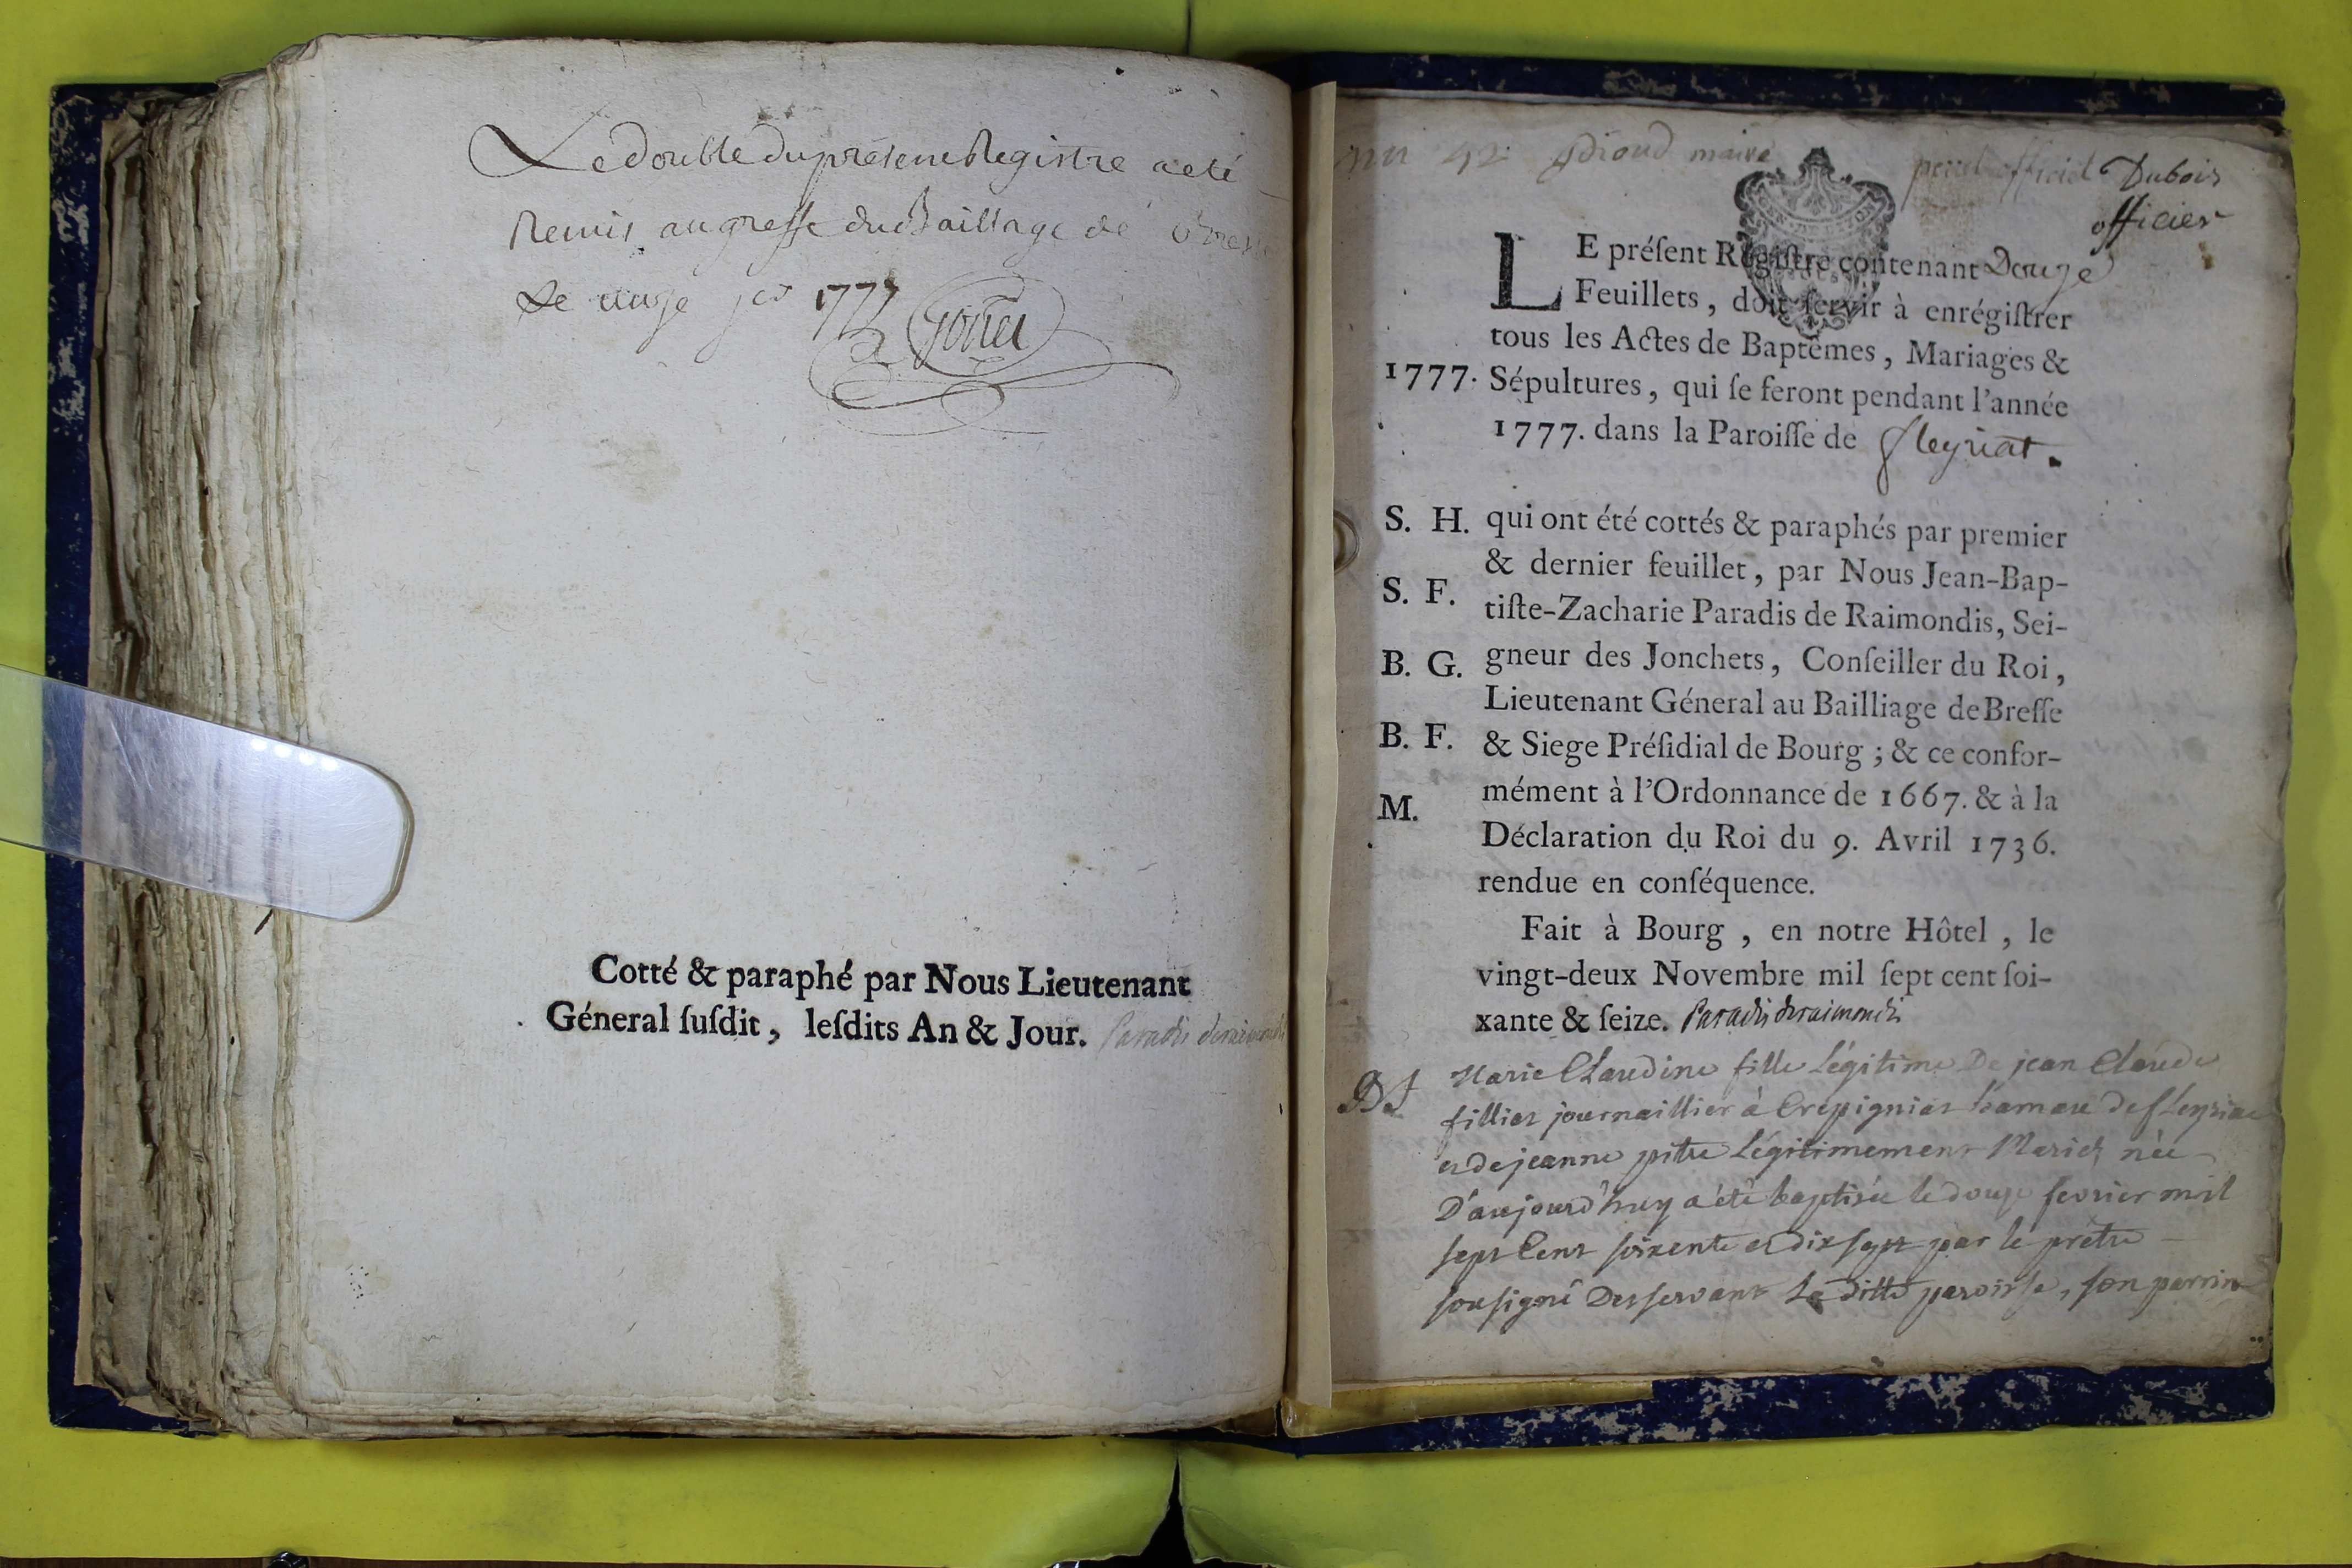 Le double du présent Registre a eté
Remis au greffe du Bailliage de Bresse
Le onze 1777
Cotté & paraphé par Nous Lieutenant
Géneral ſuſdit, leſdits An & Jour. Paradis deraimondis
maire
Dubois
officier
LE préſent Regiſtre contenant Douze
Feuillets, doit ſervir à enrégiſtrer
tous les Actes de Baptêmes, Mariages &
1777. Sépultures, qui ſe feront pendant l'année
1777. dans la Paroiſſe de fleyriat.
S. H. qui ont été cottés & paraphés par premier
& dernier feuillet, par Nous Jean-Bap-
S. F. tiſte-Zacharie Paradis de Raimondis, Sei-
B. G. gneur des Jonchets, Conſeiller du Roi,
Lieutenant Géneral au Bailliage de Breſſe
B. F. & Siege Préſidial de Bourg ; & ce confor-
M. mément à l'Ordonnance de 1667. & à la
Déclaration du Roi du 9. Avril 1736.
rendue en conſéquence.
Fait à Bourg, en notre Hôtel, le
vingt-deux Novembre mil ſept cent ſoi-
xante & ſeize. Paradis deraimondis
Marie Claudine fille Légitime De jean Claude
fillier journaillier à Crepignias hamau de fleyriac
et de jeanne pitre Légitimement Mariez née
D'aujourd'huy a été baptisée le douze fevrier mil
sept Cent soixente et dix sept par le prêtre
sousigné Desservant La ditte paroisse, son parrin